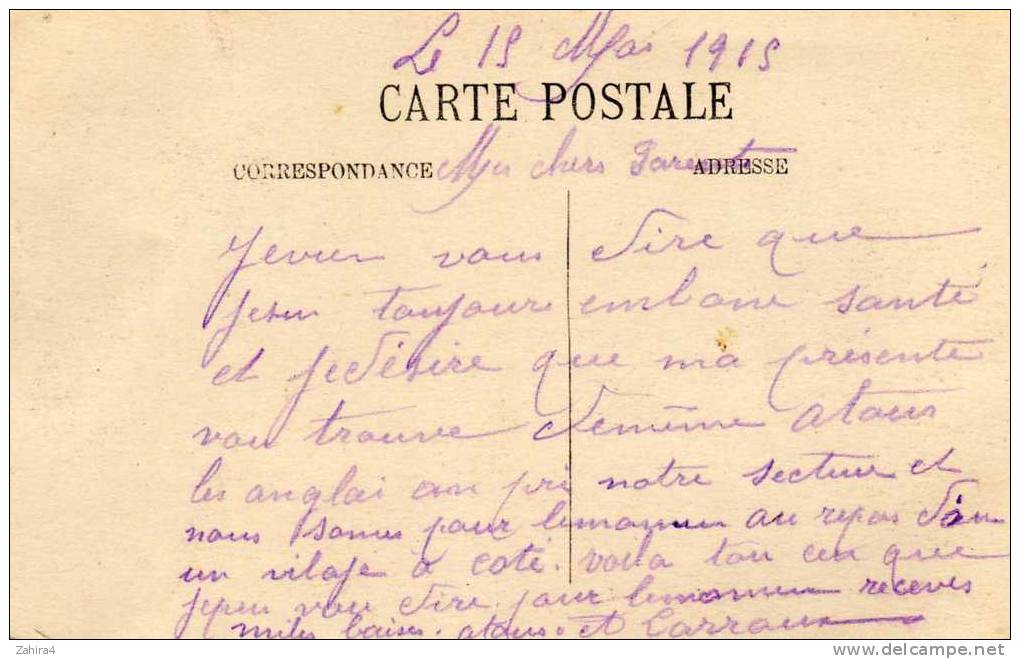 Le 15 Mai 1915
CARTE POSTALE
CORRESPONDANCE
Mes chers Parents
ADRESSE
Jevien vous dire que
jesui toujour enbone santé
et jedésire que ma présente
vou trouve demême atous
les anglai on pri notre secteur et
nous somes pour lemomen au repos dan
un vilaje a coté. voila tou ceu que
jepeu vou dire pour lemomen receves
miles baises. atous. et
Zahira4
delcampe.net